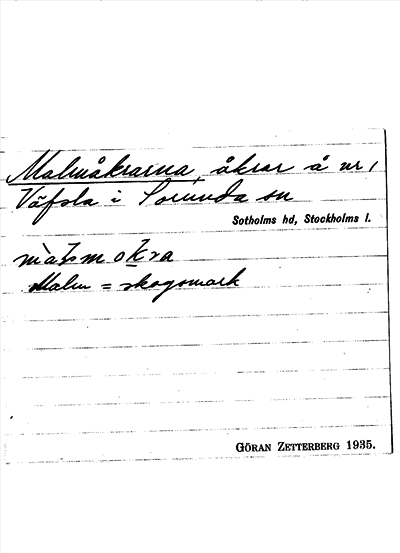 Malmåkrarna, åkrar å nr 1
Väfsla i Sorunda sn
Sotholms hd, Stockholms l.
màḷm okra
Malm = skogsmark
GÖRAN ZETTERBERG 1935.